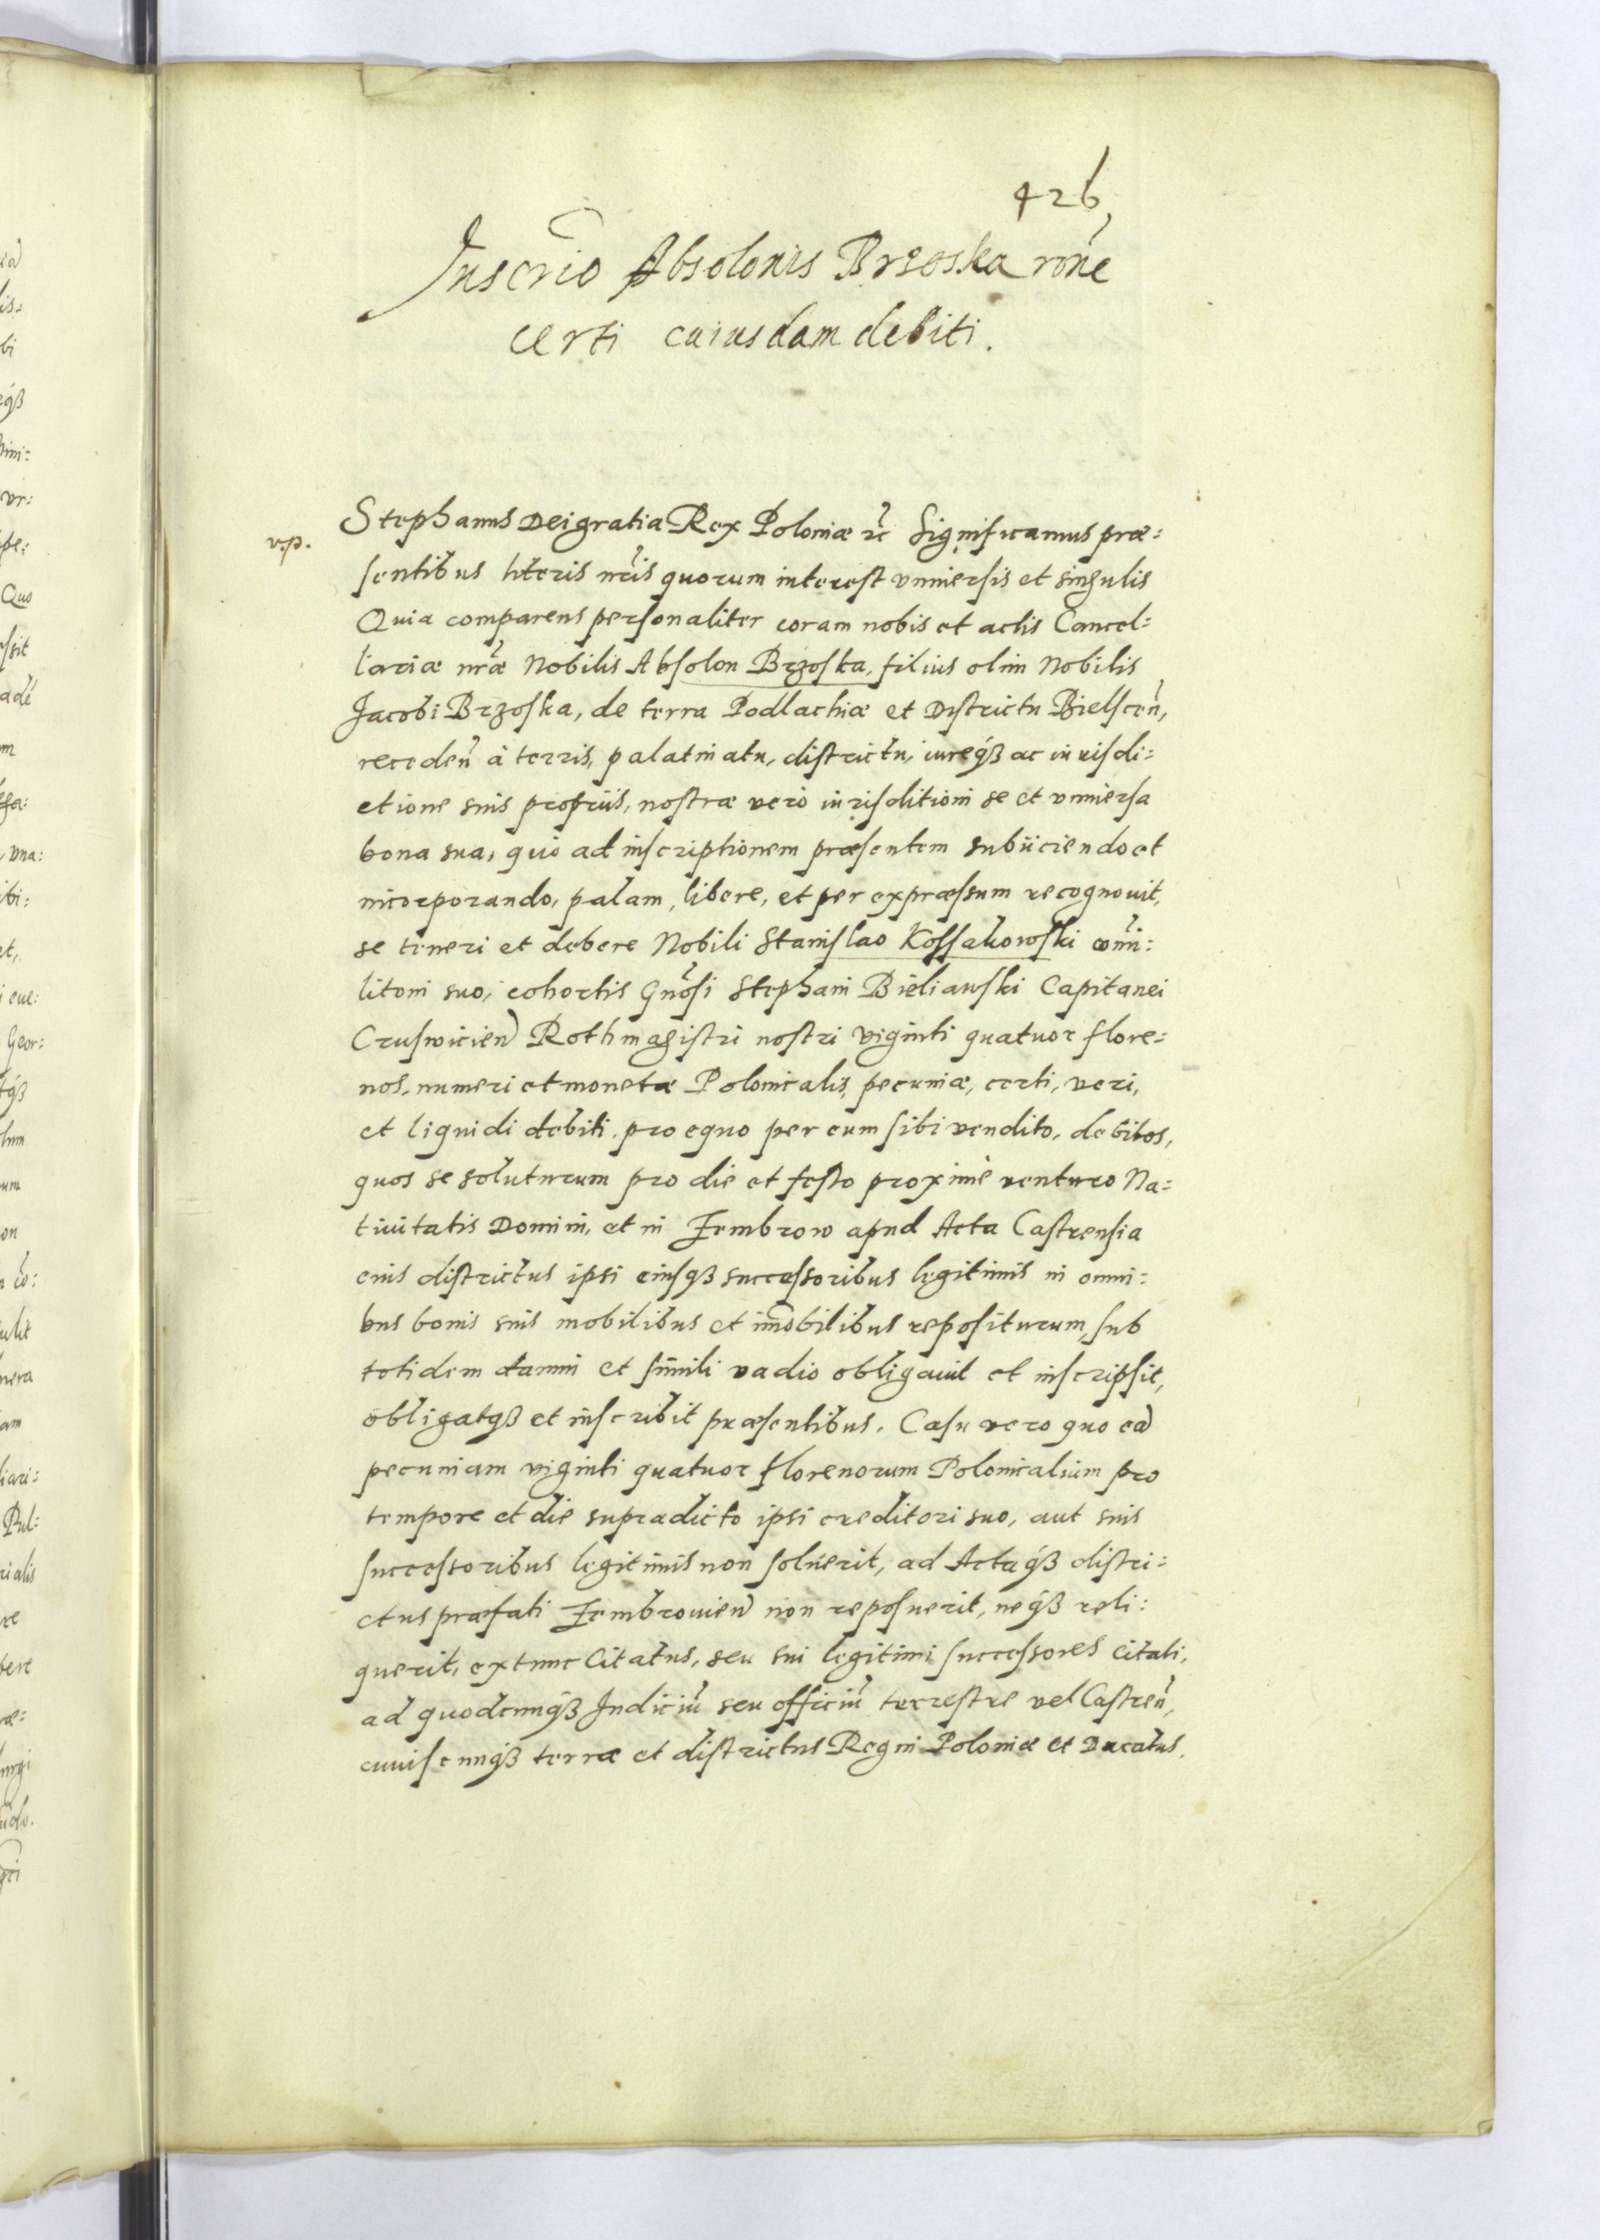 426
Inscrio Absolonis Brzoska rone
certi cuiusdam debiti.
v.p.
Stephanus Dei gratia Rex Poloniæ etc Significamus præ:
sentibus literis nris quorum interest vniuersis et singulis
Quia comparens personaliter coram nobis et actis Cancel:
lariæ nræ Nobilis Absolon Brzoska, filius olim Nobilis
Jacobi Brzoska, de terra Podlachiæ et Districtu Bielscen,
receden à terris, palatinatu, districtu, iureq3 ac iurisdi:
ctione suis proprijs, nostræ verò iurisditioni se et vniuersa
bona sua, quò ad inscriptionem præsentem subijciendo et
incorporando, palam, libere, et per expræssum recognouit,
se teneri et debere Nobili Stanislao Kossakowski comi:
litoni suo, cohortis Gnosi Stephani Bieliawski Capitanei
Cruswicien Rothmagistri nostri viginti quatuor flore:
nos, numeri et monetæ Polonicalis, pecuniæ, certi, veri,
et liquidi debiti, pro equo per eum sibi vendito, debitos,
quos se soluturum pro die et festo proximè venturo Na:
tiuitatis Domini, et in Zembrow apud Acta Castrensia
eius districtus ipsi eiusq3 successoribus legitimis in omni:
bus bonis suis mobilibus et imobilibus repositurum, sub
totidem damni et simili vadio obligauit et inscripsit,
obligatq3 et inscribit præsentibus. Casu vero quo ea
pecuniam viginti quatuor florenorum Polonicalium pro
tempore et die supradicto ipsi creditori suo, aut suis
successoribus legitimis non soluerit, ad Actaq3 distri:
ctus præfati Zembrouien non reposuerit, neq3 reli:
querit, extunc Citatus, seu sui legitimi successores citati,
ad quodcunq3 Iudiciu seu officiu terrestre vel Castren,
cuiuscunq3 terræ et districtus Regni Poloniæ et Ducatus,